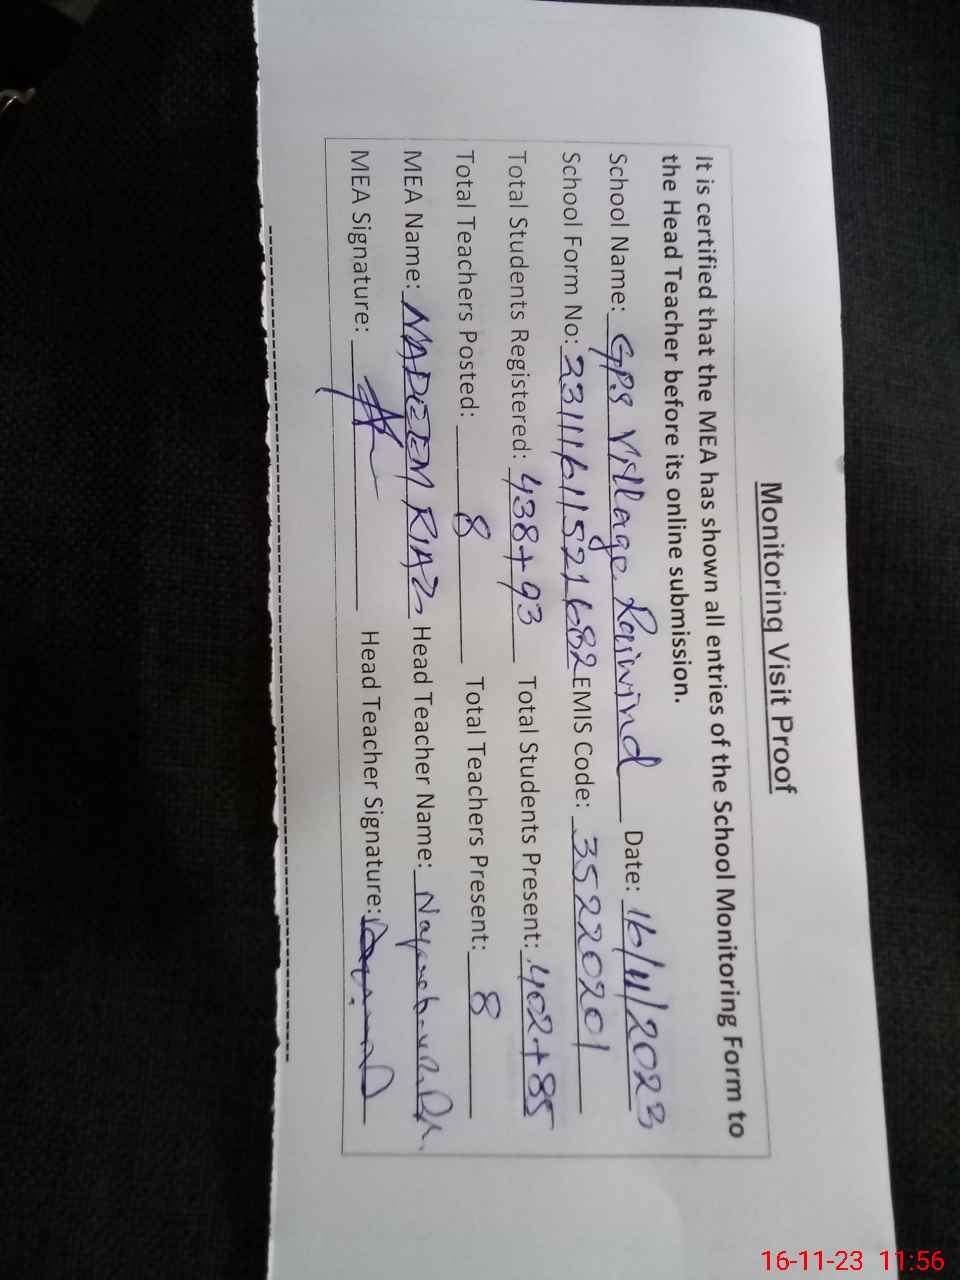 Monitoring Visit Proof
It is certified that the MEA has shown all entries of the School Monitoring Form to
the Head Teacher before its online submission.
School Name: GPS Village Raiwind Date: 16/11/2023
School Form No: 231116115221682 EMIS Code: 35220201
Total Students Registered: 438+93 Total Students Present: 402+85
Total Teachers Posted: 8 Total Teachers Present: 8
MEA Name: NADEEM RIAZ Head Teacher Name:
MEA Signature: Head Teacher Signature:
16-11-23 11:56